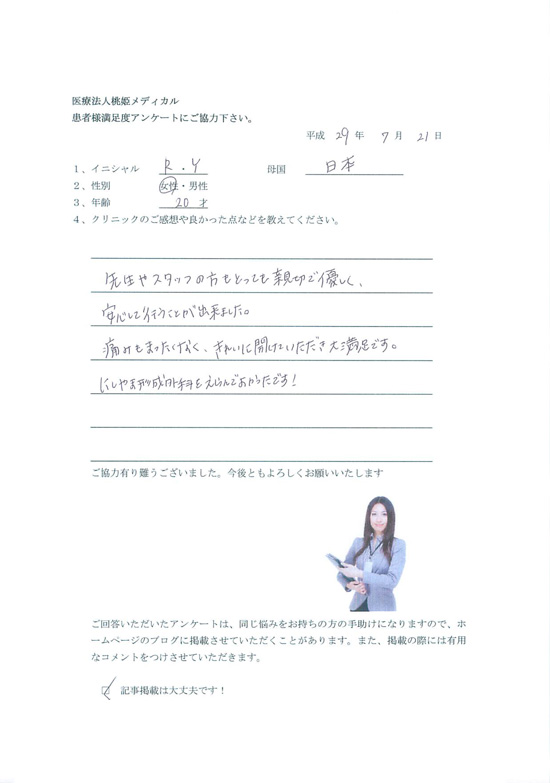 医療法人桃姫メディカル
患者様満足度アンケートにご協力下さい。
平成 29 年 7 月 21 日
1、イニシャル R.Y 母国 日本
2、性別 女性・男性
3、年齢 20 才
4、クリニックのご感想や良かった点などを教えてください。
先生やスタッフの方もとっても親切で優しく、
安心して行うことが出来ました。
痛みもまったくなく、きれいに開けていただき大満足です。
にしやま形成外科をえらんでよかったです!
ご協力有り難うございました。今後ともよろしくお願いいたします
ご回答いただいたアンケートは、同じ悩みをお持ちの方の手助けになりますので、ホ
ームページのブログに掲載させていただくことがあります。また、掲載の際には有用
なコメントをつけさせていただきます。
☑ 記事掲載は大丈夫です!